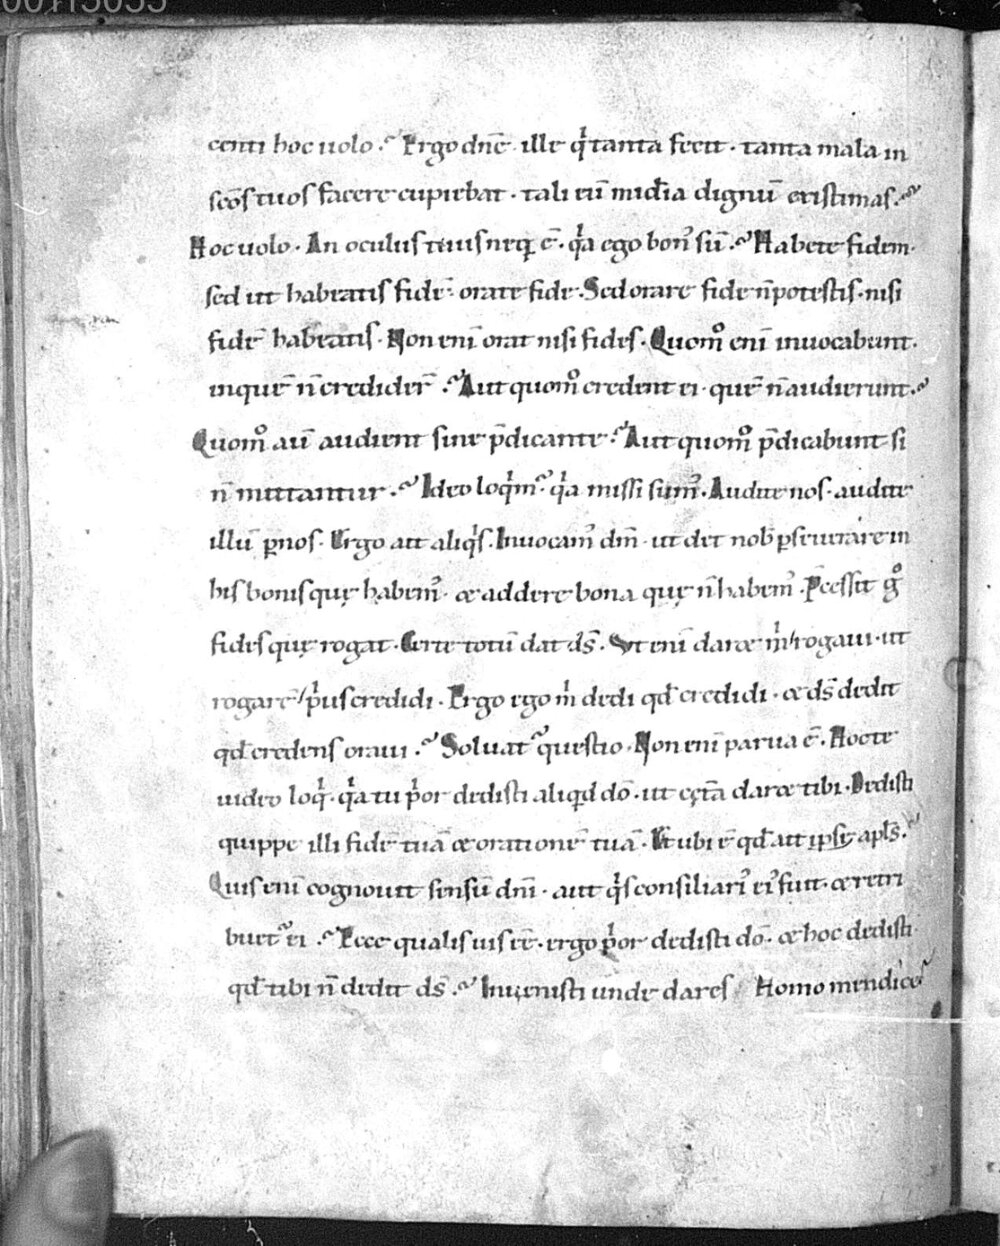 centi hoc uolo. Ergo dnē. ille qͥ tanta fecit. tanta mala in
sc̄os tuos facere cupiebat. tali eū mid̄ia dignū existimas.
Hoc uolo. An oculus tuus neq; ē. qͥa ego bonꝰ sū. Habete fidem.
sed ut habeatis fidē. orate fide. Sed orare fide n̄ potestis. nisi
fidē habeatis. Non enī orat nisi fides. Quomͦ enī inuocabunt.
in quē n̄ credider̄. Aut quomͦ credent ei. quē n̄ audierunt.
Quomͦ aū audient sine p̄dicante. Aut quomͦ p̄dicabunt si
n̄ mittantur. Ideo loqͥmꝰ. qͥa missi sumꝰ. Audite nos. audite
illū ꝑ nos. Ergo ait aliqͥs. Inuocamꝰ dm̄. ut det nob̄ ꝑseuerare in
his bonis quę habemꝰ. & addere bona quę n̄ habemꝰ. P̄cessit gͦ
fides quę rogat. Certe totū dat ds̄. Vt enī daret mͥ rogaui. ut
rogarē pͥus credidi. Ergo ego mͥ dedi qd̄ credidi. & ds̄ dedit
qd̄ credens oraui. Soluat questio. Non enī parua ē. Hoc te
uideo loqͥ. qͥa tu pͥor dedisti aliqͥd dō. ut cęt̄a daret tibi. Dedisti
quippe illi fidē tuā & orationē tuā. Et ubi ē qd̄ ait ipse apl̄s.
Quis enī cognouit sensū dn̄i. aut qͥs consiliariꝰ eiꝰ fuit. & retri
buet ei. Ecce qualis uis eē. ergo pͥor dedisti dō. & hoc dedisti
qd̄ tibi n̄ dedit ds̄. Inuenisti unde dares Homo mendice